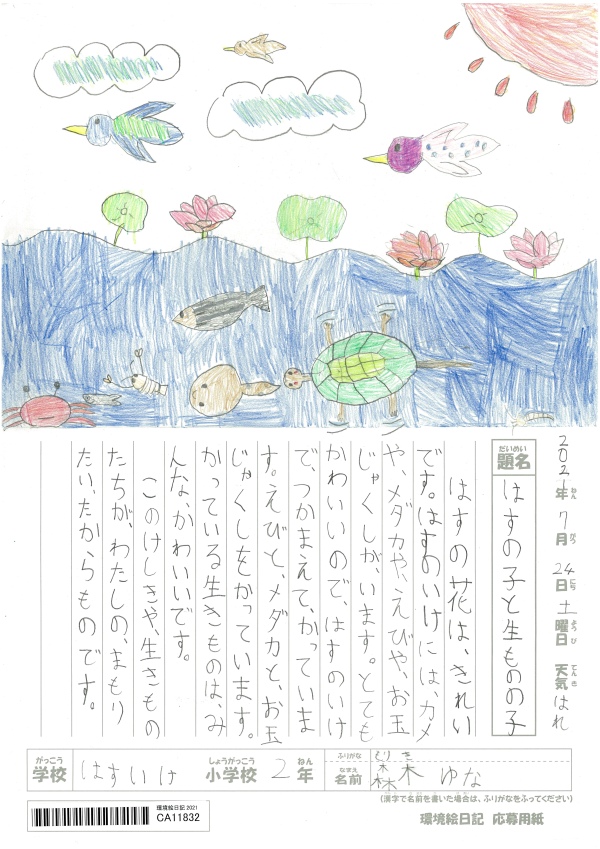 2021年7月24日土曜日 天気はれ
ねん がつ にち ようび てんき
だいめい
題名 はすの子と生ものの子
はすの花は、きれい
です。はすのいけには、カメ
や、メダカや、えびや、お玉
じゃくしが、います。とても
かわいいので、はすのいけ
で、つかまえて、かっていま
す。えびと、メダカと、お玉
じゃくしをかっています。
かっている生きものは、み
んな、かわいいです。
このけしきや、生きもの
たちが、わたしの、まもり
たい、たからものです。
がっこう しょうがっこう ねん ふりがな もり き
学校 はすいけ 小学校 2年 名前 森木 ゆな
なまえ
(漢字で名前を書いた場合は、ふりがなをふってください)
環境絵日記2021
CA11832
環境絵日記 応募用紙